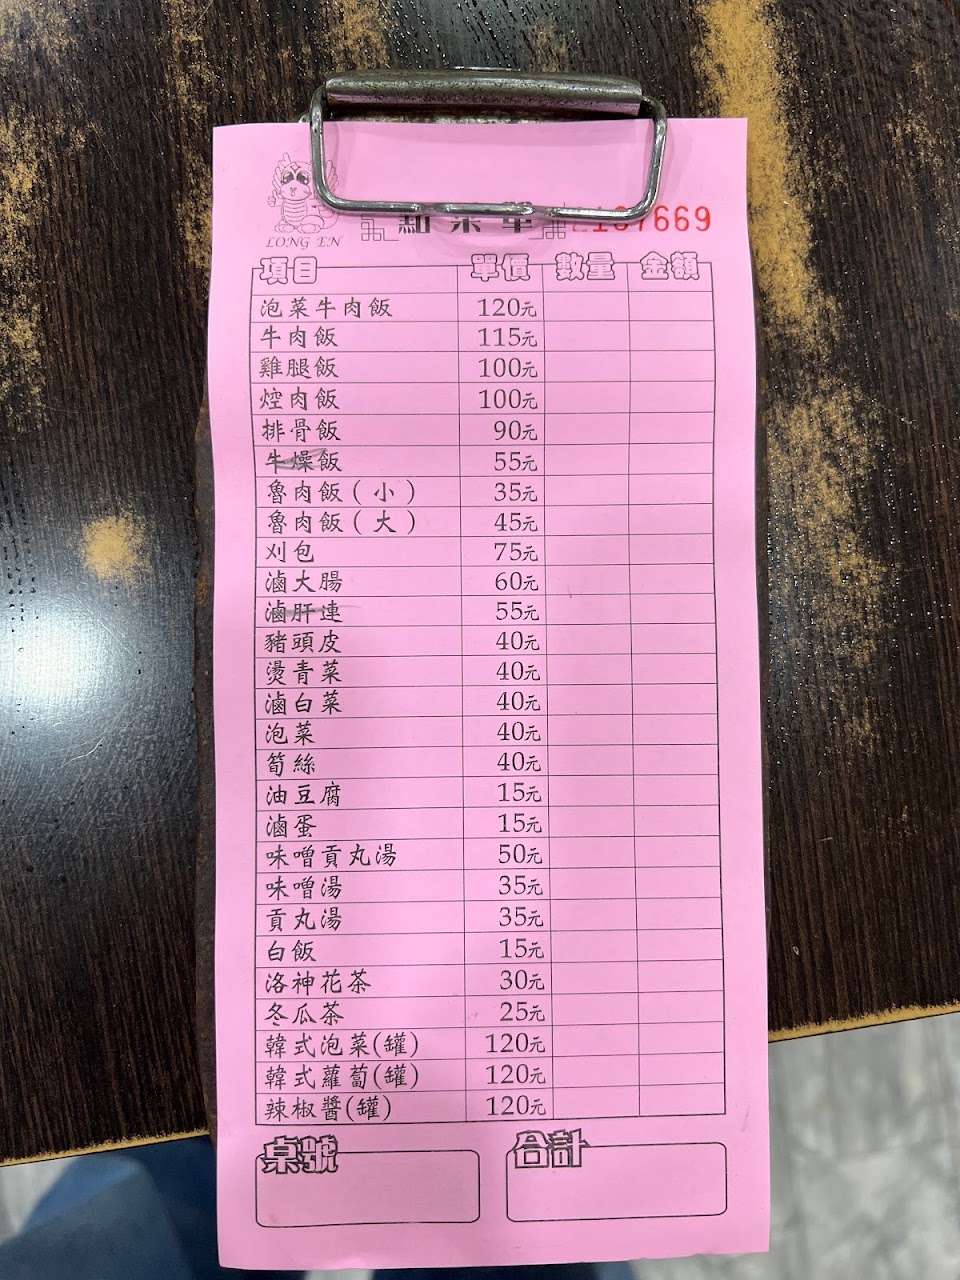 LONG EN
點菜單
項目 單價 數量 金額
泡菜牛肉飯 120元
牛肉飯 115元
雞腿飯 100元
焢肉飯 100元
排骨飯 90元
牛燥飯 55元
魯肉飯(小) 35元
魯肉飯(大) 45元
刈包 75元
滷大腸 60元
滷肝連 55元
豬頭皮 40元
燙青菜 40元
滷白菜 40元
泡菜 40元
筍絲 40元
油豆腐 15元
滷蛋 15元
味噌貢丸湯 50元
味噌湯 35元
貢丸湯 35元
白飯 15元
洛神花茶 30元
冬瓜茶 25元
韓式泡菜(罐) 120元
韓式蘿蔔(罐) 120元
辣椒醬(罐) 120元
桌號 合計